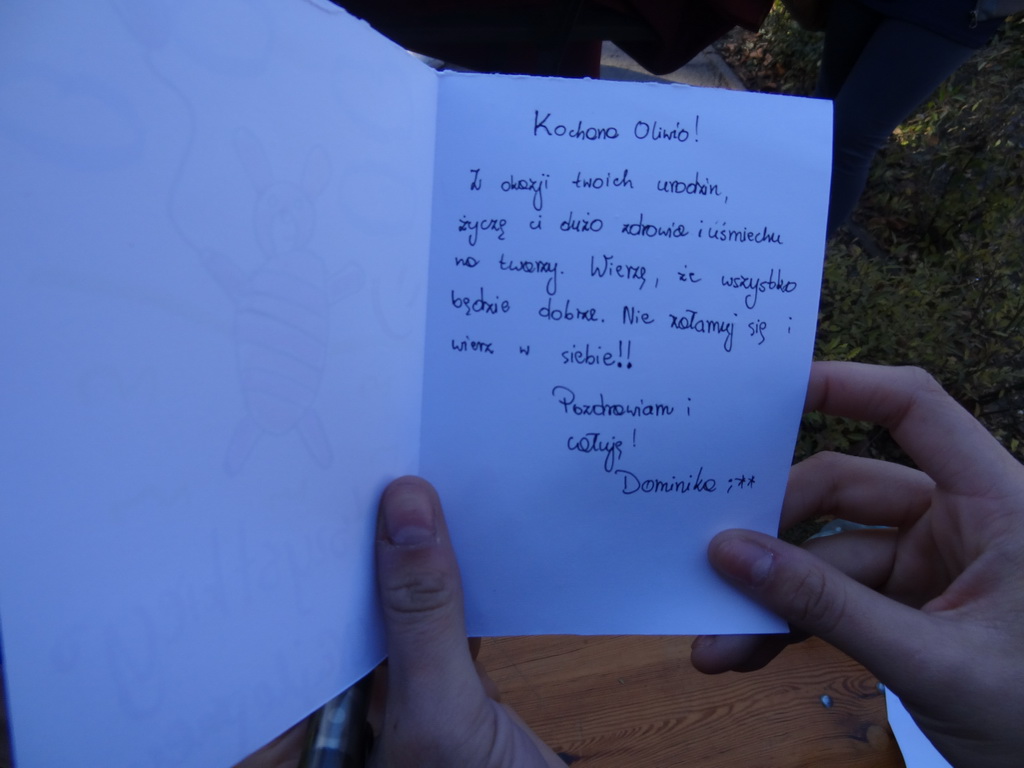 Kochana Oliwio!
Z okazji twoich urodzin,
życzę ci dużo zdrowia i uśmiechu
na twarzy. Wierzę, że wszystko
będzie dobrze. Nie załamuj się i
wierz w siebie!!
Pozdrawiam i
całuję!
Dominika ;**